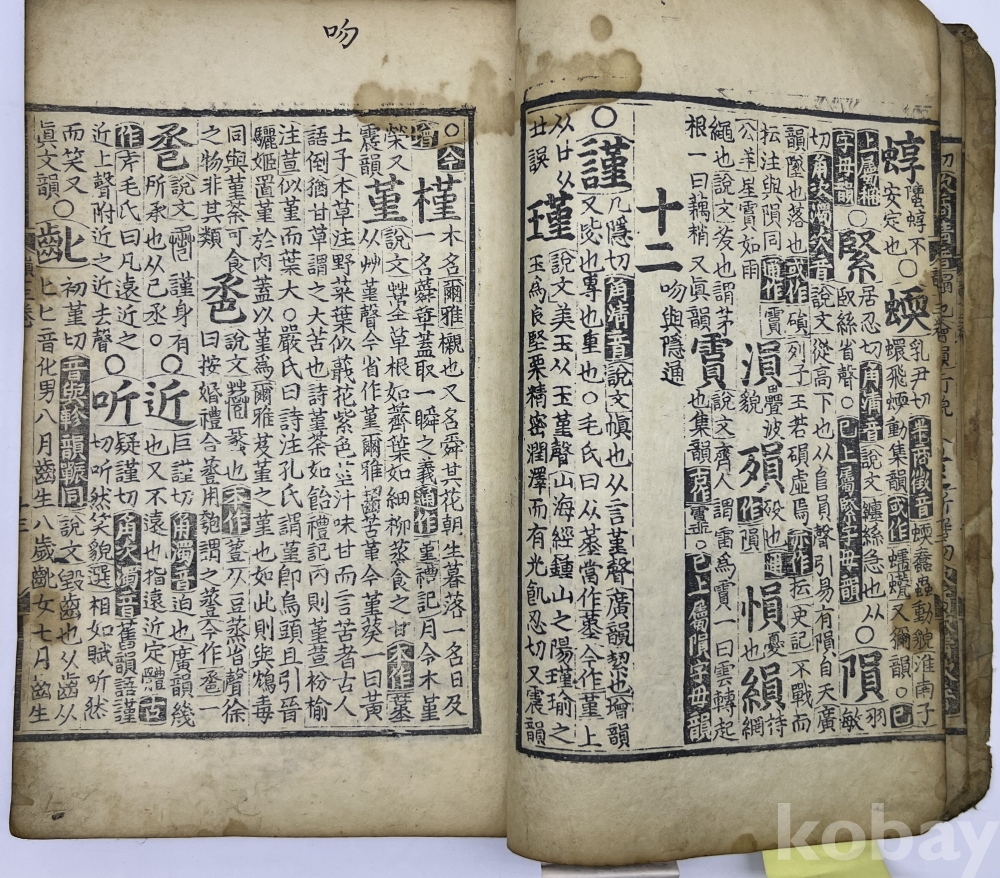 吻
蜳䘆蜳不安定也○蝡乳尹切半商徵音蝡蠢蟲動貌淮南子蠉飛蝡動集韻或作蠕又獮韻○已
上屬稛字母韻○緊居忍切角清音說文纏絲急也从臤絲省聲○已上屬緊字母韻○隕羽敏
切角次濁次音說文從高下也从𨸏員聲引易有隕自天廣韻墜也落也或作磒列子王若磒虛焉亦作抎史記不戰而
抎注與隕同通作霣公羊星霣如雨溳疊波貌殞歿也通作隕愪憂也縜詩網
繩也說文茇也謂茅根一曰藕梢又眞韻霣說文齊人謂雷爲霣一曰雲轉起也集韻古作䨶○已上屬隕字母韻
十二吻與隱通
○謹几隱切角清音說文愼也从言堇聲廣韻絜也增韻又毖也專也重也○毛氏曰从堇當作堇今作堇上
从廿从廿誤瑾說文美玉从玉堇聲山海經鍾山之陽瑾瑜之玉爲良堅栗精密潤澤而有光飢忍切又震韻
○今增槿木名爾雅櫬也又名舜其花朝生暮落一名日及一名蕣華蓋取一瞬之義通作堇禮記月令木堇
榮又震韻堇說文堇草根如薺葉如細柳蒸食之甘本作蓳从艸堇聲今省作堇爾雅齧苦堇今堇葵一曰黃
土子本草注野菜葉似蕺花紫色㞷汁味甘而言苦者古人語倒猶甘草謂之大苦也詩堇荼如飴禮記內則堇荁枌榆
注荁似堇而葉大○嚴氏曰詩注孔氏謂堇卽烏頭且引晉驪姬置堇於肉蓋以堇爲爾雅芨堇之堇也如此則與鴆毒
同與堇荼可食之物非其類卺說文蠡也本作𧯷从豆蒸省聲徐曰按婚禮合卺用匏謂之卺今作卺一
卺說文謹身有所承也从己丞○近巨謹切角濁音迫也廣韻幾也又不遠也指遠近定體古
作岸毛氏曰凡遠近之近上聲附近之近去聲○听疑謹切角次濁音舊韻語謹切听然笑貌選相如賦听然
而笑又眞文韻○齔初堇切音與軫韻䠎同說文毀齒也从齒从匕匕音化男八月齒生八歲齔女七月齒生